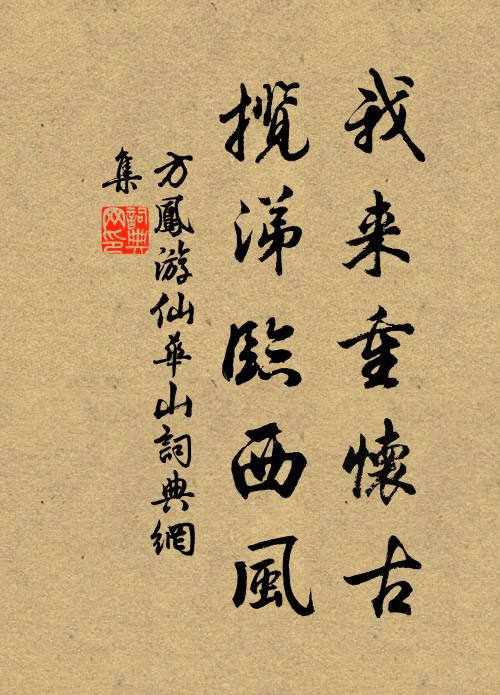 我来重懷古
攬涕臨西風
方鳳游仙華山詞典網
集
詞典网印